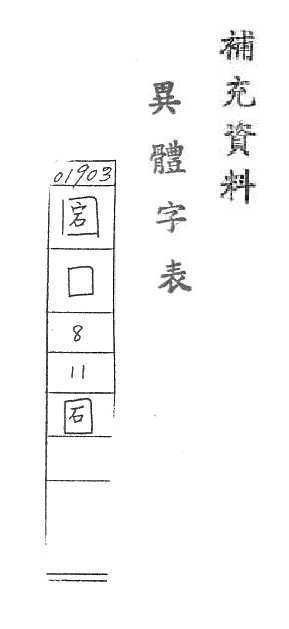 補充資料
異體字表
01903
宕
8
11
石